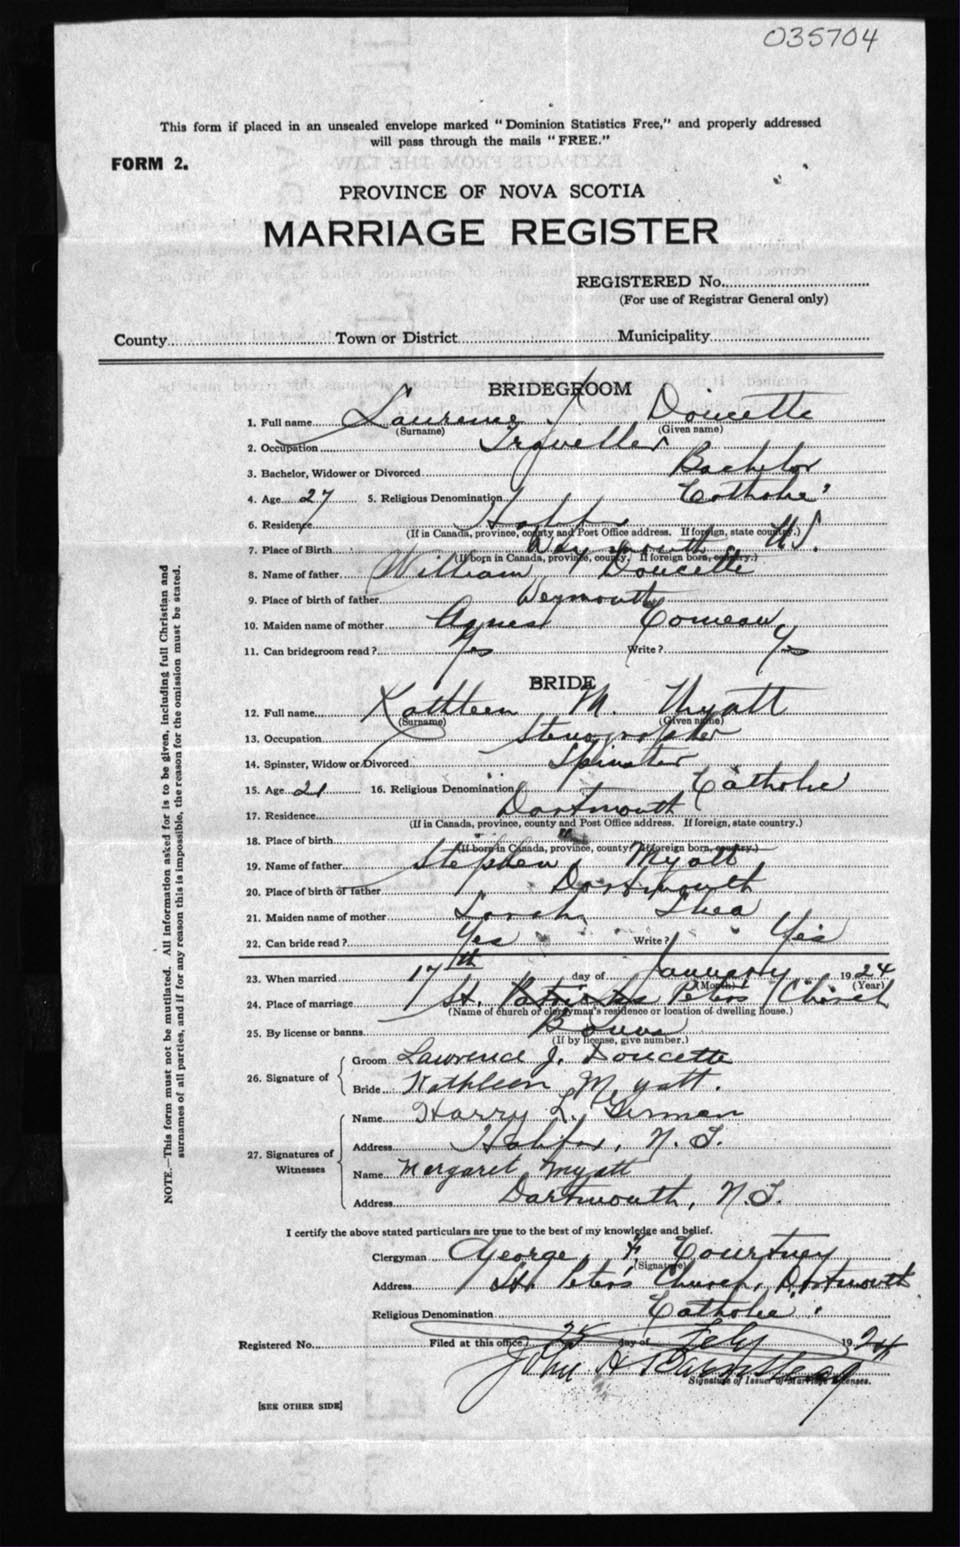 035704
This form if placed in an unsealed envelope marked "Dominion Statistics Free," and properly addressed
will pass through the mails "FREE."
FORM 2.
PROVINCE OF NOVA SCOTIA
MARRIAGE REGISTER
REGISTERED No.
(For use of Registrar General only)
County Town or District Municipality
BRIDEGROOM
1. Full name Laurence J Doucette
(Surname) (Given name)
2. Occupation Traveller
3. Bachelor, Widower or Divorced Bachelor
4. Age 27 5. Religious Denomination Catholic
6. Residence Halifax
(If in Canada, province, county and Post Office address. If foreign, state country.)
7. Place of Birth Weymouth N.S.
(If born in Canada, province, county. If foreign born, country.)
8. Name of father William Doucette
9. Place of birth of father Weymouth
10. Maiden name of mother Agnes Comeau
11. Can bridegroom read? Yes Write? Yes
BRIDE
12. Full name Kathleen M. Myatt
(Surname) (Given name)
13. Occupation Stenographer
14. Spinster, Widow or Divorced Spinster
15. Age 21 16. Religious Denomination Catholic
17. Residence Dartmouth
(If in Canada, province, county and Post Office address. If foreign, state country.)
18. Place of birth "
(If born in Canada, province, county. If foreign born, country.)
19. Name of father Stephen Myatt
20. Place of birth of father Dartmouth
21. Maiden name of mother Sarah Shea
22. Can bride read? Yes Write? Yes
23. When married 17th day of January 1924
(Month) (Year)
24. Place of marriage St. Peters Church
(Name of church or clergyman's residence or location of dwelling house.)
25. By license or banns
(If by license, give number.)
26. Signature of Groom Lawrence J. Doucette
Bride Kathleen Myatt.
27. Signatures of Witnesses Name Harry L. German
Address Halifax, N.S.
Name Margaret Myatt
Address Dartmouth, N.S.
I certify the above stated particulars are true to the best of my knowledge and belief.
Clergyman George F. Courtney
(Signature)
Address St. Peters Church, Dartmouth
Religious Denomination Catholic
Registered No. Filed at this office 25 day of Feby 1924
John A Barnstead
Signature of Issuer of Marriage Licenses.
[SEE OTHER SIDE]
NOTE.—This form must not be mutilated. All information asked for is to be given, including full Christian and
surnames of all parties, and if for any reason this is impossible, the reason for the omission must be stated.